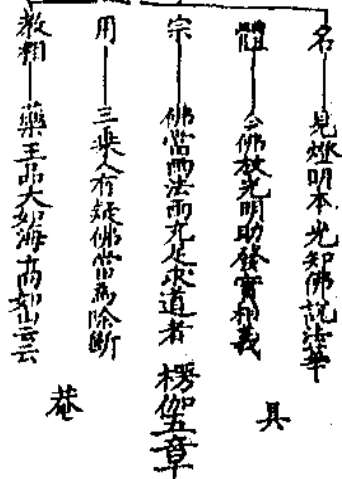 名 見燈明本光知佛說法華
體 今佛放光明助發實相義
宗 佛當雨法雨充足求道者
用 三乘人有疑佛當為除斷
教相 藥王品大如海高如山云云
具
楞伽五章
菴